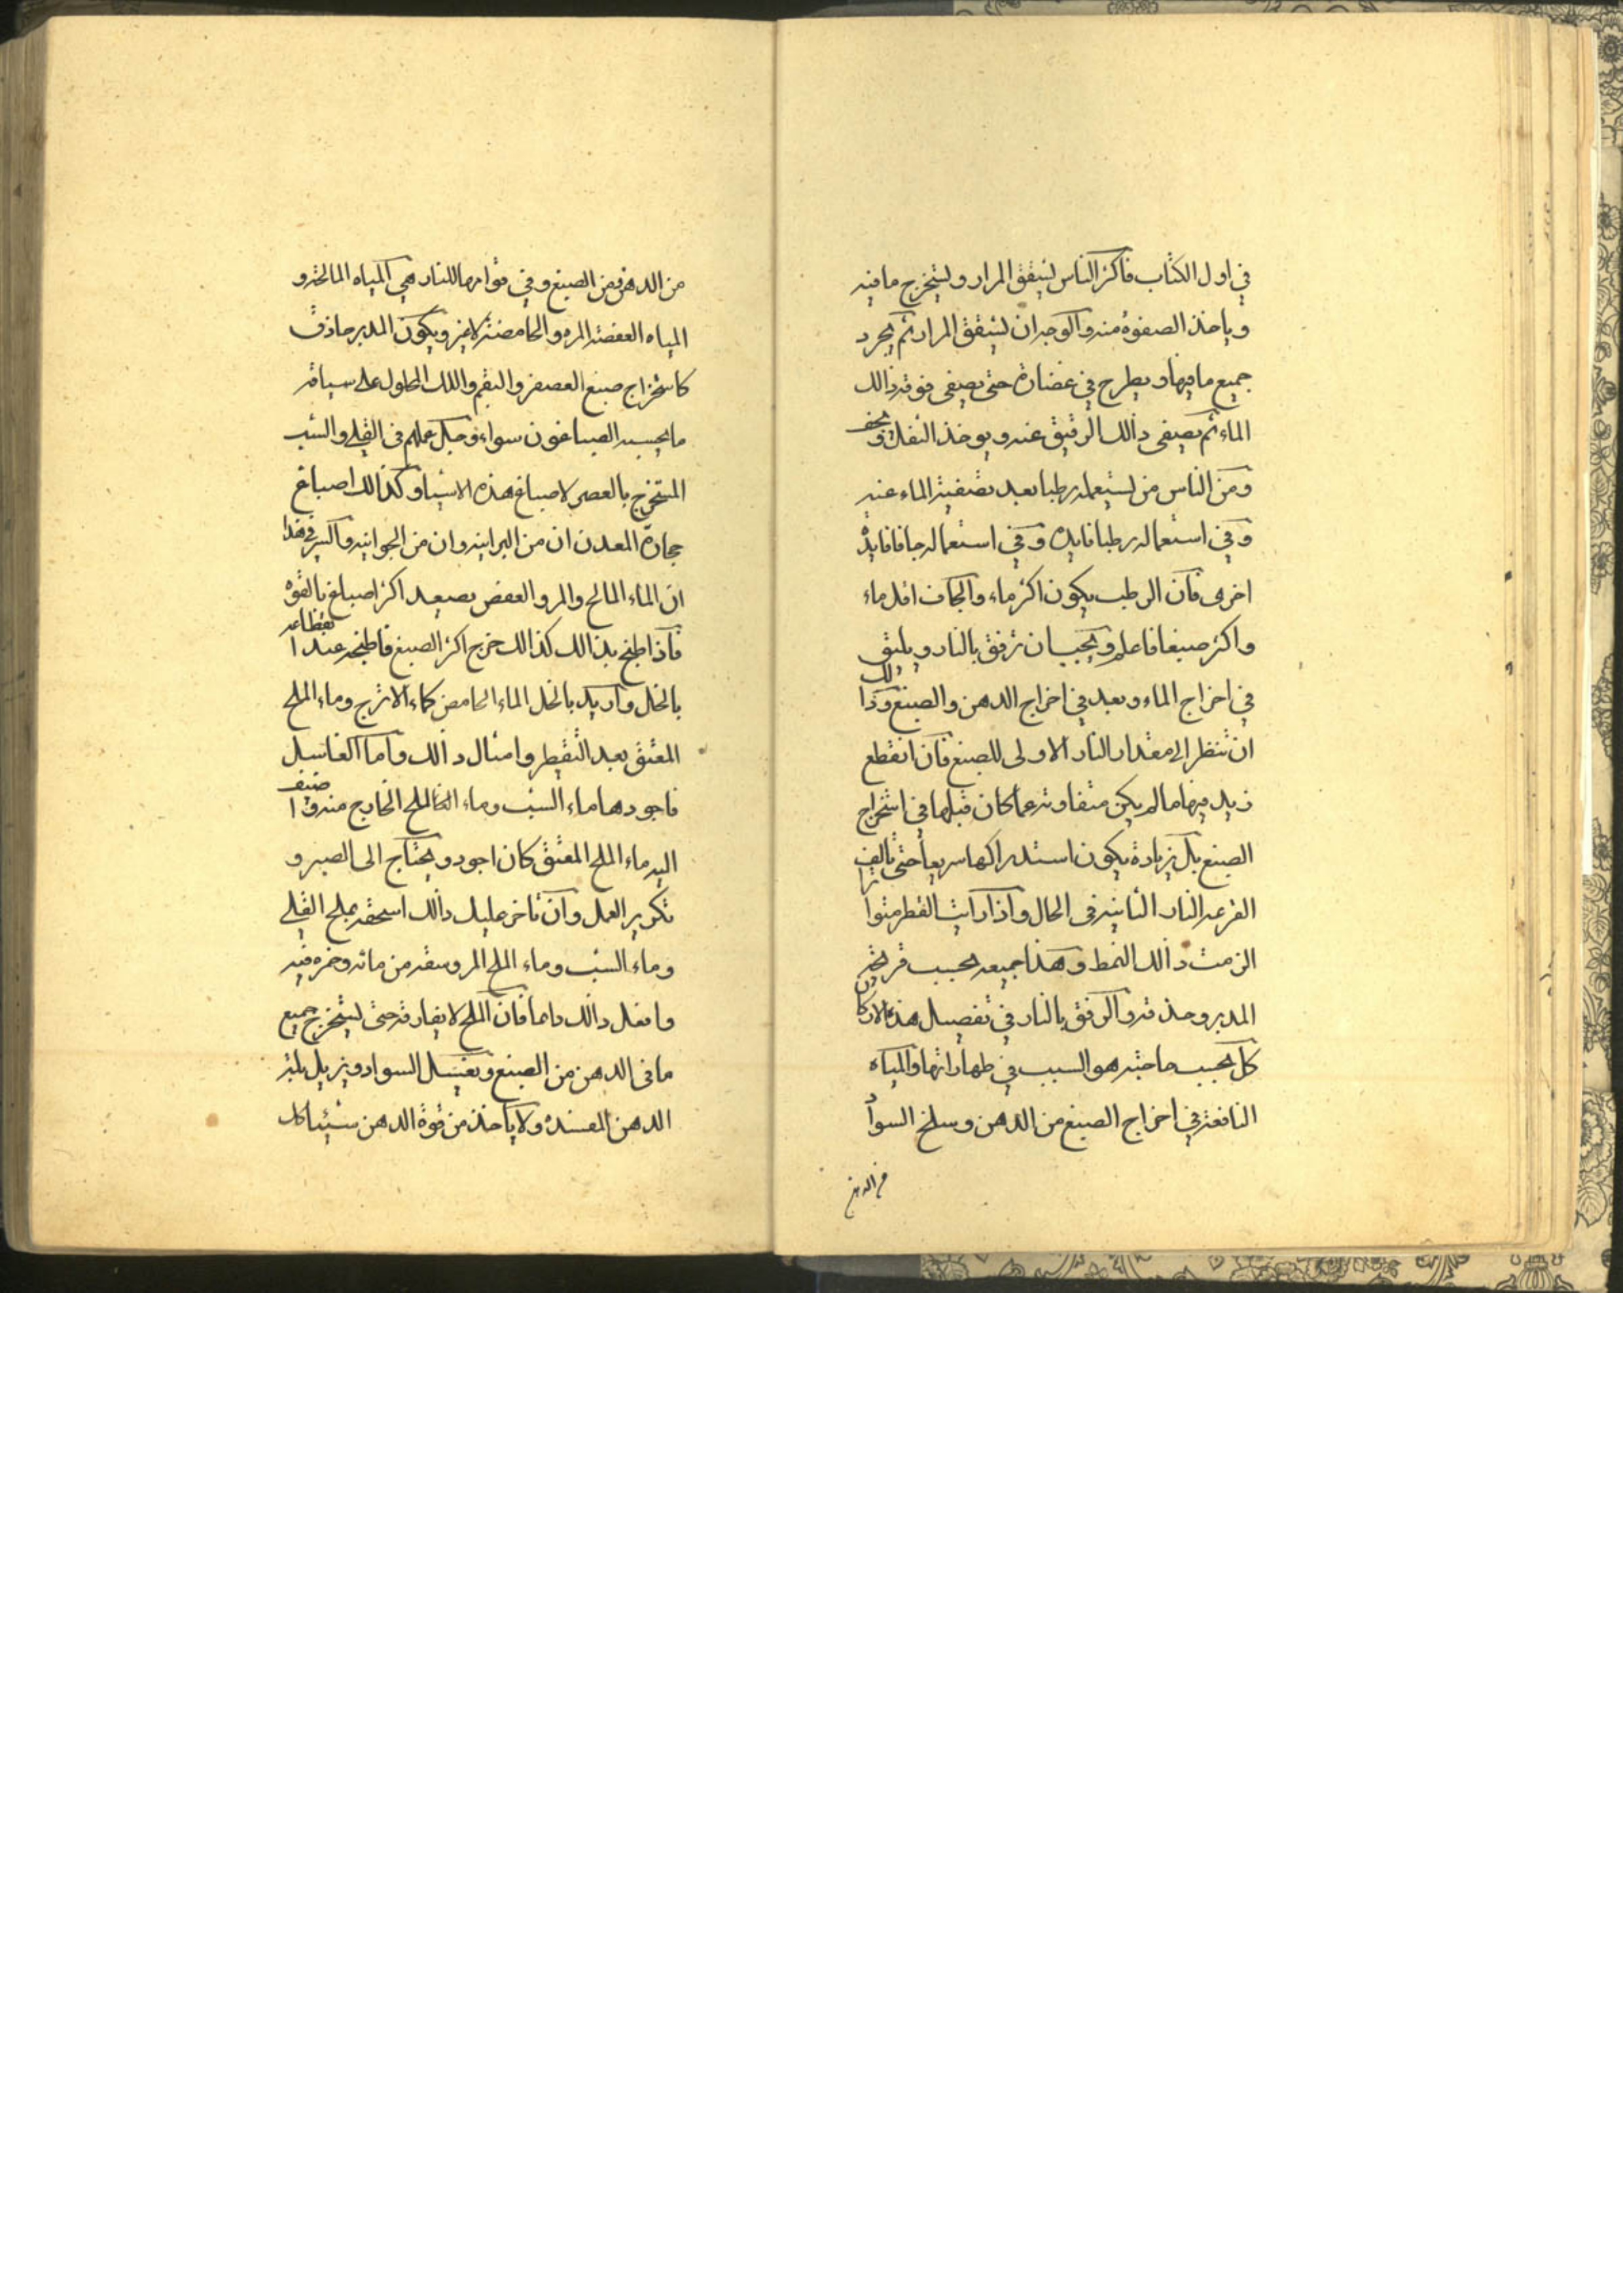 في اول الكتاب فاكثر الناس يشقق المرار ويستخرج ما فيه
وياخذ الصفوة منه والوجه ان يشقق المرار ثم يجرد
جميع ما فيها ويطرح في غضارة حتى يصفى فوقه ذالك
الماء ثم يصفى ذالك الرقيق عنه ويوخذ الثفل ويجفف
ومن الناس من يستعمله رطبا بعد تصفية الماء عنه
وفي استعماله رطبا فايدة وفي استعماله جافا فايدة
اخرى فان الرطب يكون اكثر ماء والجاف اقل ماء
واكثر صبغا فاعلم ويجب ان ترفق بالنار ويليق
في اخراج الماء وبعد في اخراج الدهن والصبغ وذالك
ان تنظر الى مقدار النار الاولى للصبغ فان انقطع
زيد فيها ما لم يكن متفاوته عما كان قبلها في استخراج
الصبغ بل زيادة يكون استدراكها سريعا حتى تالف
القرعه النار الثانيه في الحال واذا رايت القطر متواترا
الزمت ذالك النمط وهذا جميعه بحسب قريحة
المدبر وحذقه والرفق بالنار في تفصيل هذه الاركان
كل بحسب حاجته هو السبب في طهاراتها والمياه
النافعة في اخراج الصبغ من الدهن وسلخ السواد
من الدهن
من الدهن ومن الصبغ وفي قوامها للنار هي المياه المالحة و
المياه العفصة المرة والحامضة لا غير ويكون المدبر حاذق
كاستخراج صبغ العصفر والبقم واللك المحلول على سياقة
ما يحسبه الصباغون سواء وجل عملهم في القلي والشب
المستخرج بالعصر لاصباغ هذه الاشيا وكذالك اصباغ
حجارة المعدن ان من البرانيه وان من الجوانيه واكسير في هذا
ان الماء المالح والمر والعفص يصعد اكثر اصباغ بالقوة
فاذا طبخ بذالك كذالك خرج اكثر الصبغ فاطبخه عند انقطاعه
بالخل واريد بالخل الماء الحامض كماء الاترج وماء الملح
المعتق بعد التقطير وامثال ذالك واما الغاسل
فاجودها ماء الشب وماء الملح الخارج منه واذا ضيف
اليه ماء الملح المعتق كان اجود ويحتاج الى الصبر و
تكرير العمل وان تاخر عليك ذالك اسحقه بملح القلي
وماء الشب وماء الملح المر وسقه من مائه وخمره فيه
وافعل ذالك دايما فان الملح لا يفارقه حتى يستخرج جميع
ما في الدهن من الصبغ ويغسل السواد ويزيل بلة
الدهن المفسدة ولا ياخذ من قوة الدهن شيئا كل